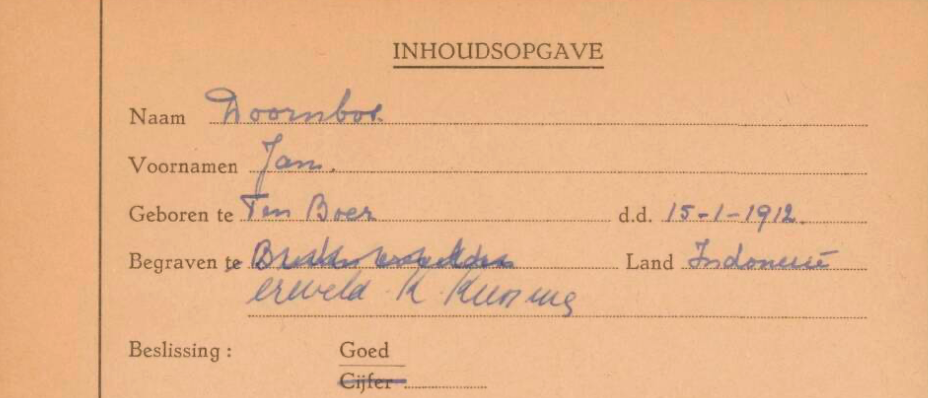 INHOUDSOPGAVE
Naam Doornbos
Voornamen Jan.
Geboren te Ten Boer d.d. 15-1-1912.
Begraven te Land Indonesië
ereveld K. Kuning
Beslissing :
Goed
Cijfer